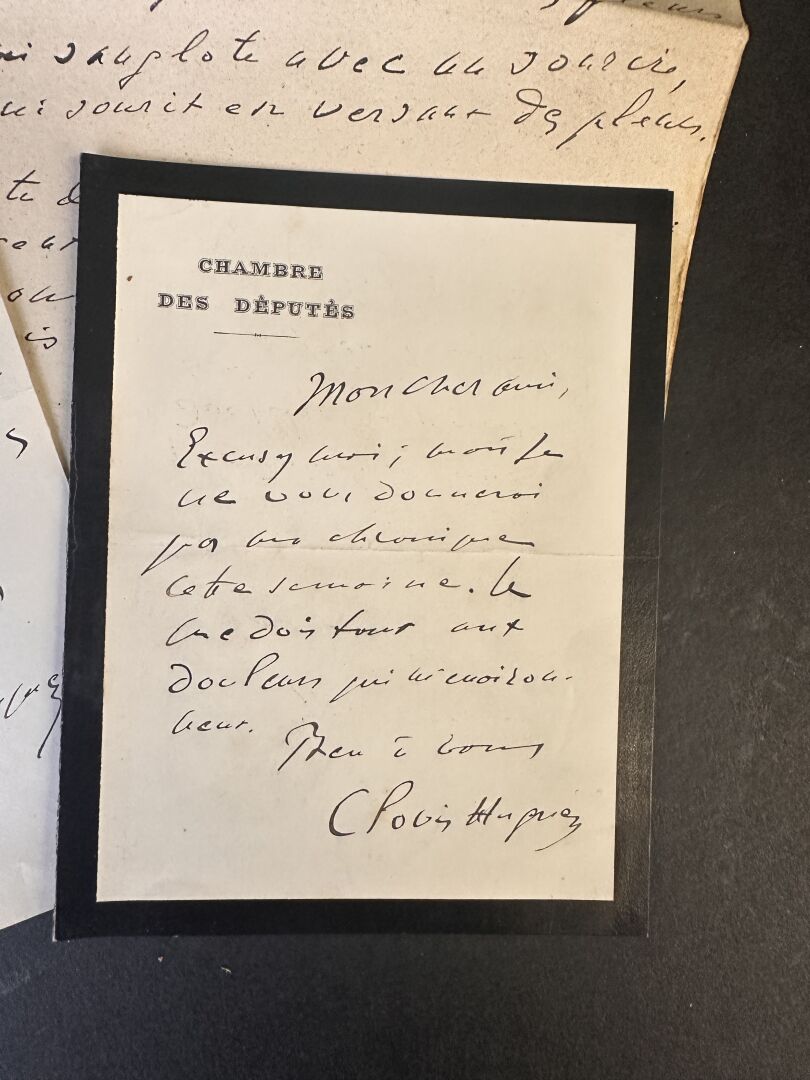 sanglote avec un sourire,
qui sourit en versant des pleurs.
CHAMBRE
DES DÉPUTÉS
Mon cher ami,
Excusez moi ; mais je
ne vous donnerai
pas ma chronique
cette semaine. Je
me dois tout aux
douleurs qui m'environ-
nent.
Bien à vous
Clovis Hugues